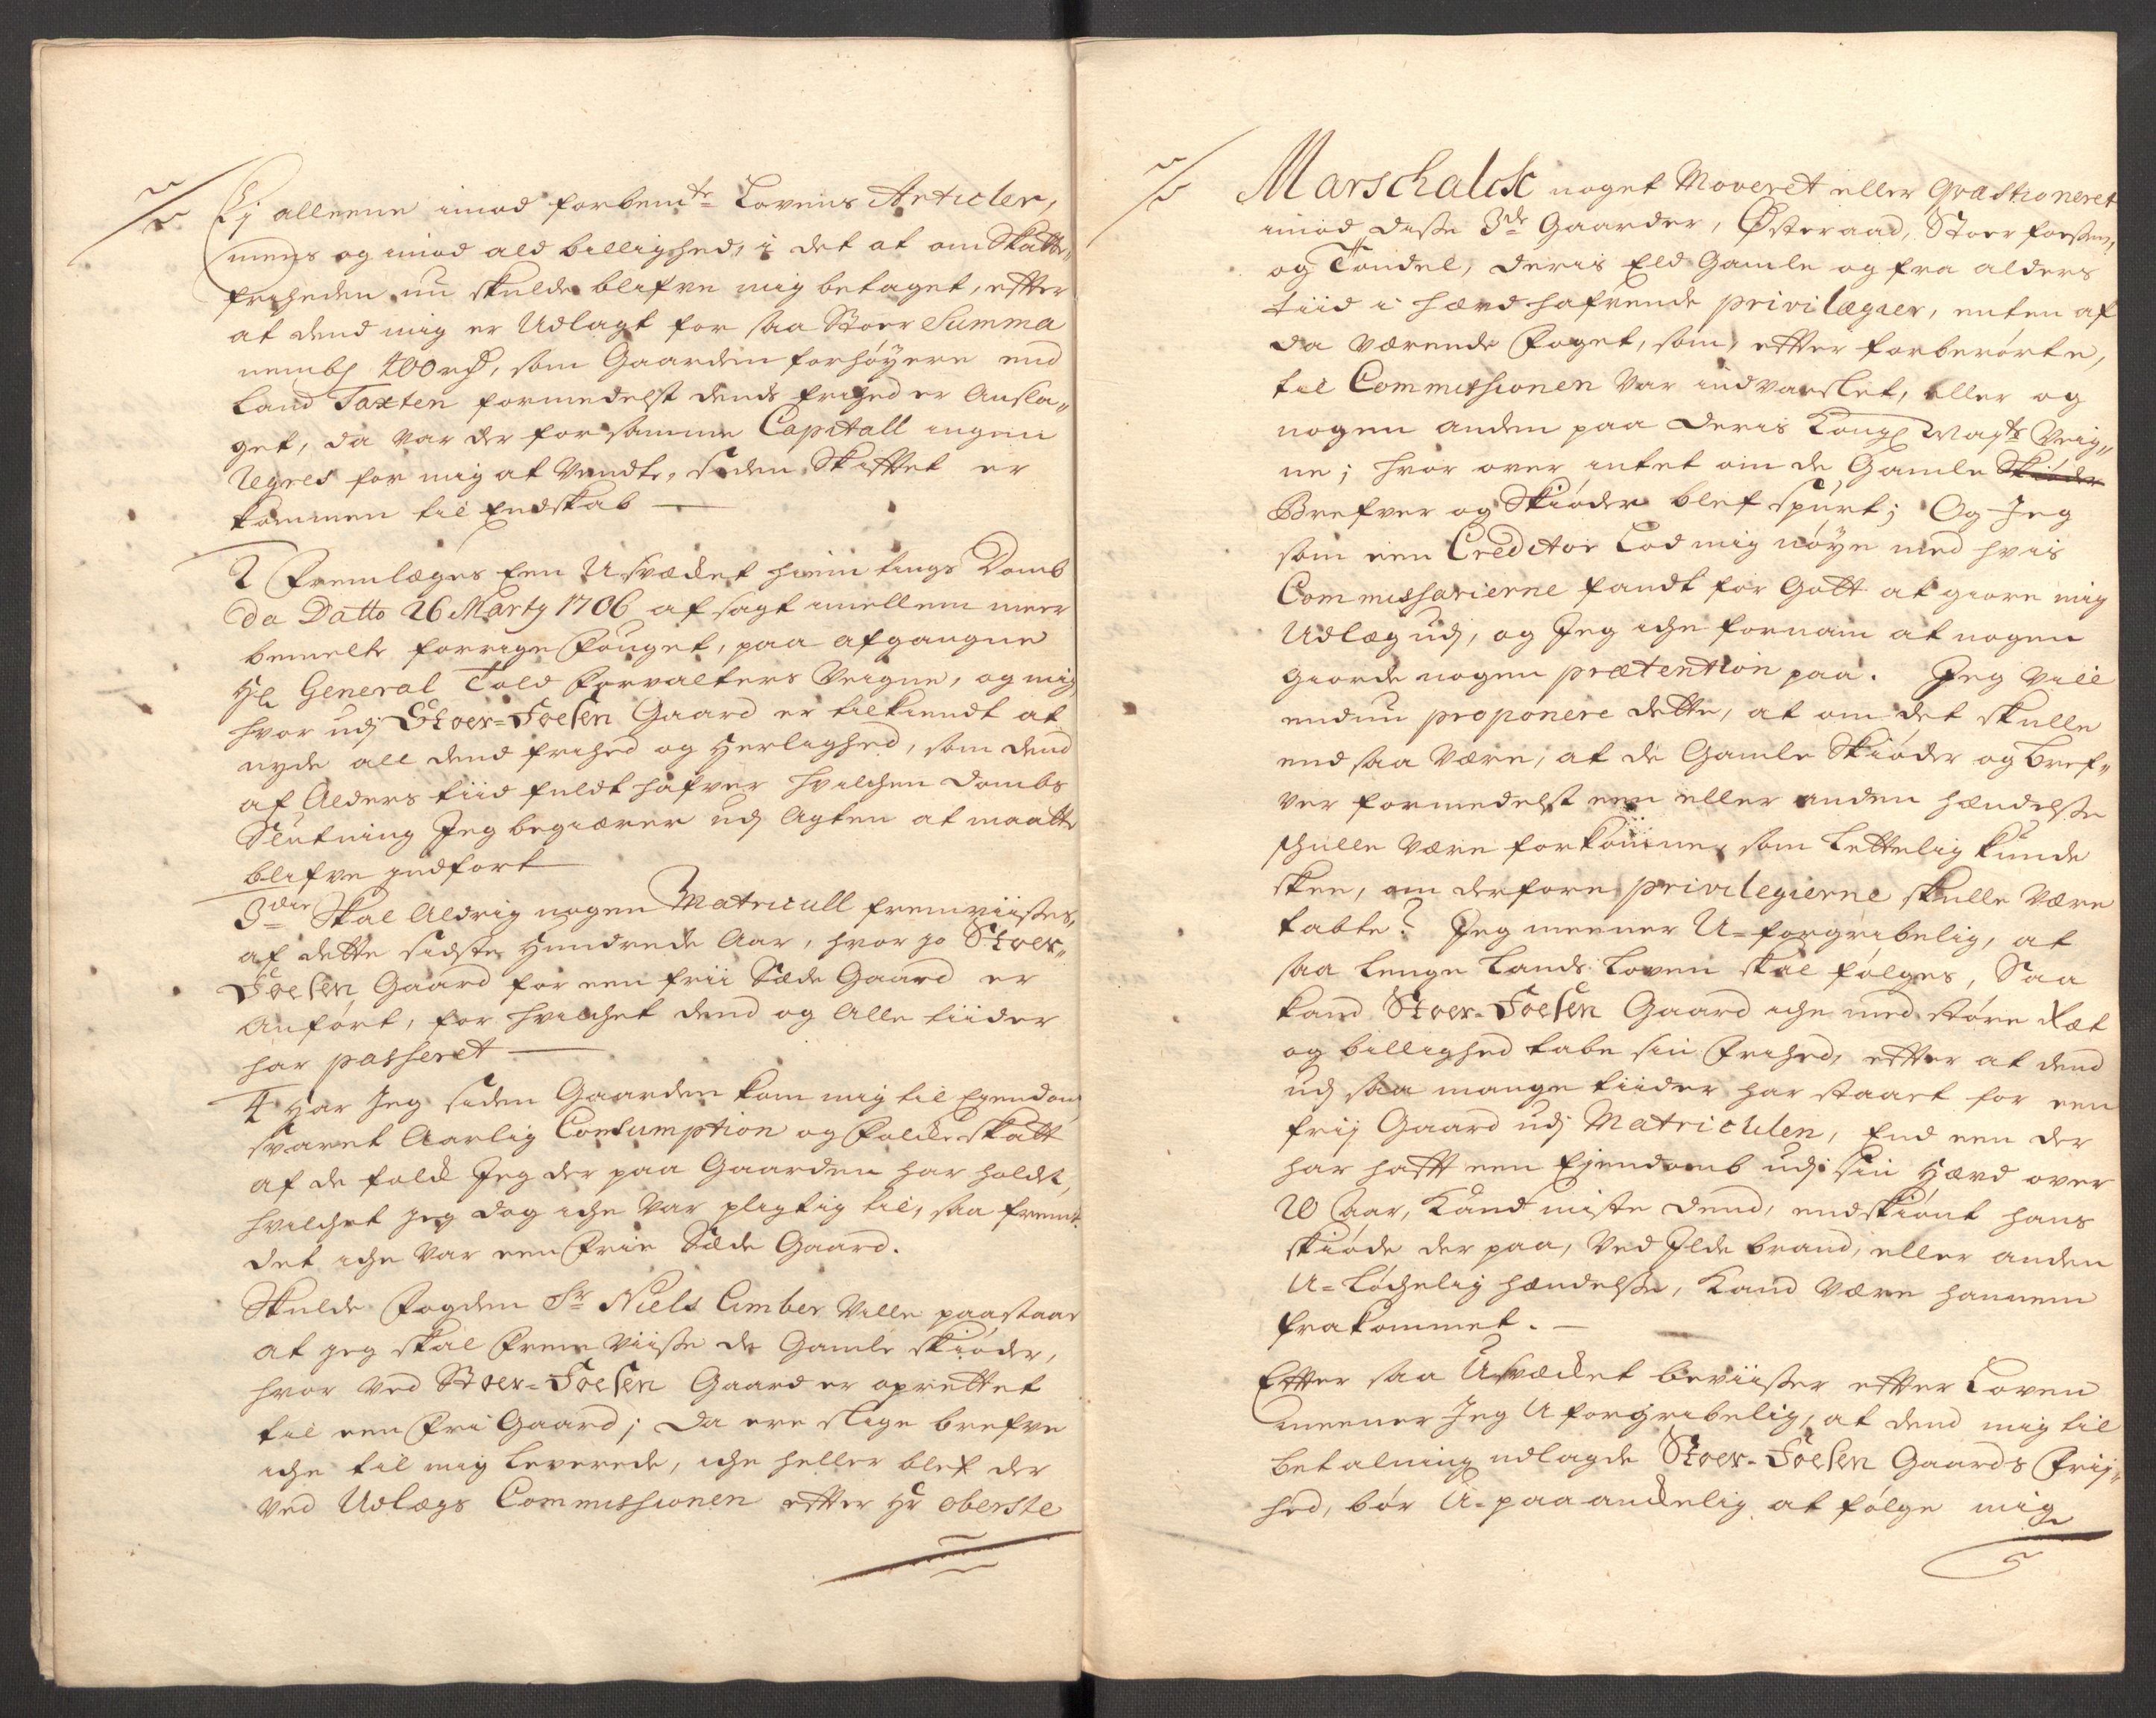 Ej alleene imod forbemte Lovens Articler,
mens og imod ald billighed, i det at om Skatte„
friheden nu skulde blifve mig betaget, efter
at dend mig er Udlagt for saa Stoer Summa
nembl 400 rd, som Gaarden forhøyere end
Land Taxten formedelst dends frihed er Ansla„
get, da var der for samme Capitall ingen
Regres for mig at vendte, siden Skiftet er
kommen til Endskab —
2 Fremlægges Een Usvæcket hiem tings Domb
da Datto 26 Marty 1706 af sagt imellem meer
bemelte forrige Fouget, paa afgangne
Hl General Told Forvalters Veigne, og mig
hvor udj Stoer-Foesen Gaard er tilkiendt at
nyde all dend frihed og Herlighed, som dend
af Alders tiid fuldt hafver hvilchen Dombs
Slutning Jeg begiærer udj Agten at maatte
blifve indført
3die Skal Aldrig nogen Matricull fremviisses,
af dette sidste Hundrede Aar, hvor jo Stoer„
Foesen Gaard for een frii Sæde Gaard er
Anført, for hvilchet dend og Alle tiider
har passeret —
4 Har Jeg siden Gaarden kom mig til Ejendom
svaret Aarlig Consumption og Folcke skatt
af de folck Jeg der paa Gaarden har holdt,
hvilchet jeg dog iche var pligtig til, saa fremt
det iche var een Frie Sæde Gaard.
Skulde Fogden Sr Niels Cimber ville paastaae
at jeg skal Frem viisse de Gamle skiøder,
hvor ved Stoer-Foesen Gaard er oprettet
til een Fri Gaard; da ere slige brefve
iche til mig leverede, iche heller blef der
ved Udlægs Commissionen efter Hr oberste
Marschalck noget Moveret eller Qvæstioneret
imod disse 3de Gaarder, Østeraad, Stoer foessen,
og Tøndel, deris Eld Gamle og fra alders
tiid i hævd hafvende privilægier, enten af
da værende Foget, som, efter forberørte,
til Commissionen var indvarslet, eller og
nogen anden paa deris Kongl Mayts Veig„
ne; hvor over intet om de Gamle Skiøder
Brefver og Skiøder blef spurt; Og Jeg
som een Creditor lod mig nøye med hvis
Commissarierne fandt for Gott at giøre mig
Udlæg udj, og Jeg iche fornam at nogen
giorde nogen prætention paa. Jeg vill
endnu proponere dette, at om det skulle
end saa være, at de Gamle Skiøder og bref„
ver formedelst een eller anden hændelsse
schulle være forkomme, som lettelig kunde
skee, om derfore privilegierne skulle være
tabte? Jeg meener U-forgribelig, at
saa lenge Lands Loven skal følges, Saa
kand Stoer-Foesen Gaard iche med større Ræt
og billighed tabe sin Frihed, efter at dend
udj saa mange tiider har staaet for een
frij Gaard udj Matriculen, End een der
har hafft een Ejendomb udj sin Hævd over
20 Aar, Kand miste dend, endskiønt hans
skiøde der paa, ved Ilde brand, eller anden
U-løchelig hændelsse, Kand være hannem
frakommet. —
Efter saa Usvæcket beviisser efter Loven
meener Jeg Uforgribelig, at dend mig til
betalning udlagde Stoer-Foesen Gaards Frij„
hed, bør U-paaanckelig at følge mig